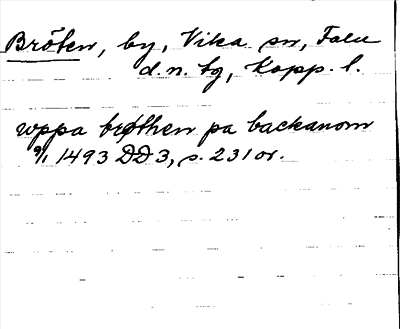 Bröten, by, Vika sn, Falu
d. n. tg, Kopp. l.
wppa brøthen pa backanom
9/1 1493 DD 3, s. 231 or.